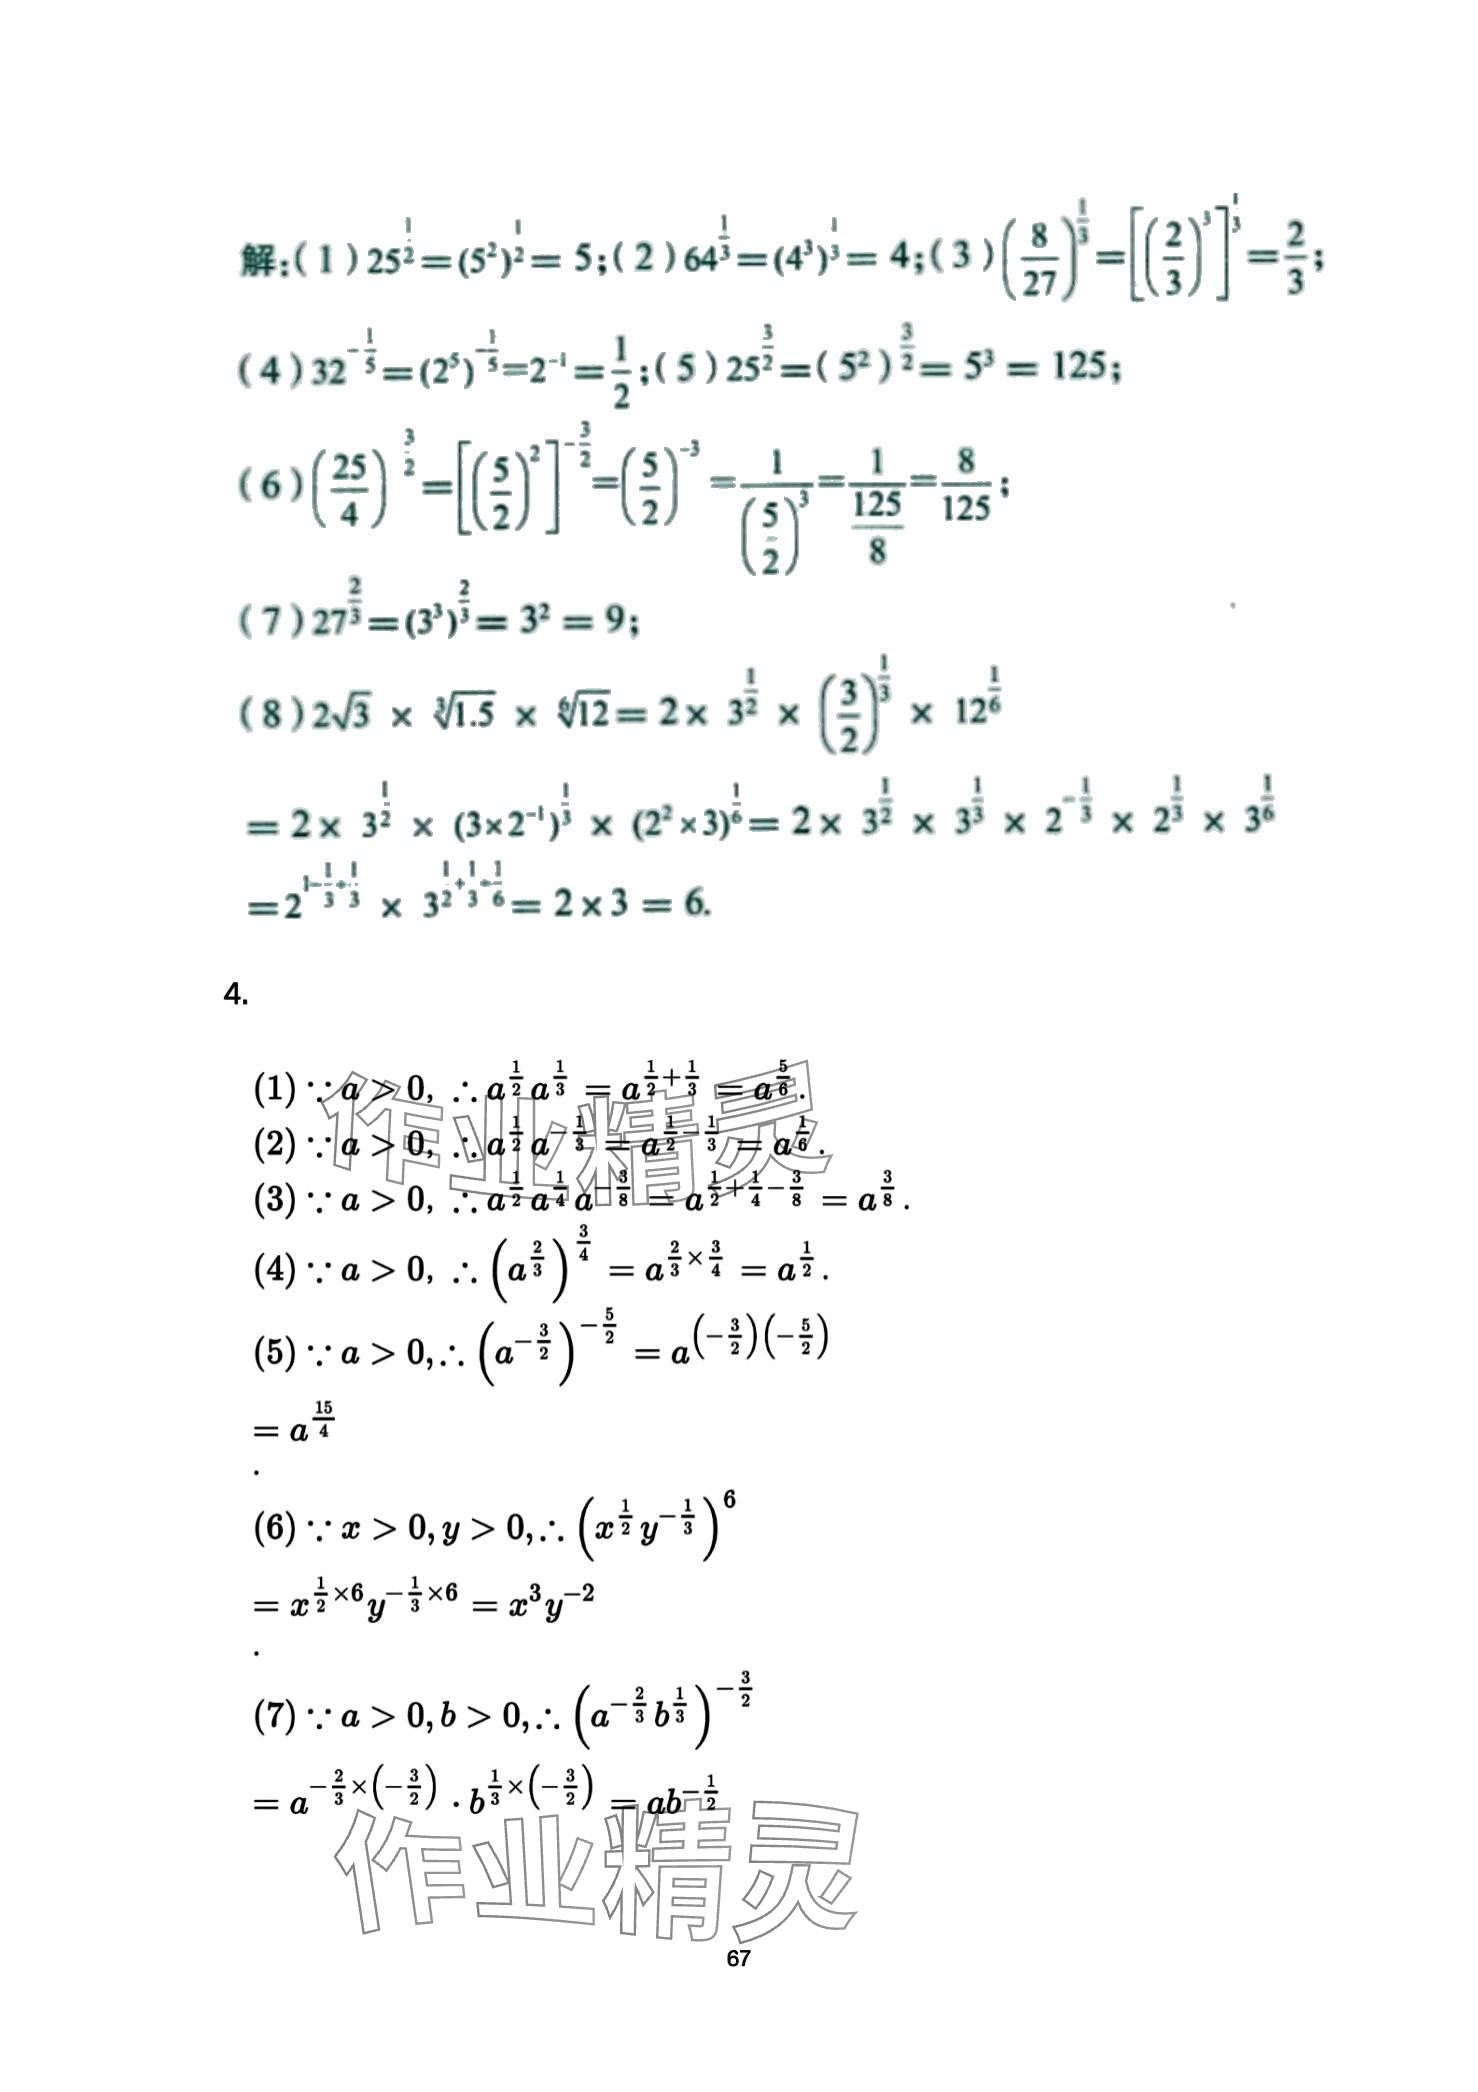 解:(1)25^{\frac{1}{2}}=(5^2)^{\frac{1}{2}}=5;(2)64^{\frac{1}{3}}=(4^3)^{\frac{1}{3}}=4;(3)\left(\frac{8}{27}\right)^{\frac{1}{3}}=\left[\left(\frac{2}{3}\right)^3\right]^{\frac{1}{3}}=\frac{2}{3};
(4)32^{-\frac{1}{5}}=(2^5)^{-\frac{1}{5}}=2^{-1}=\frac{1}{2};(5)25^{\frac{3}{2}}=(5^2)^{\frac{3}{2}}=5^3=125;
(6)\left(\frac{25}{4}\right)^{\frac{3}{2}}=\left[\left(\frac{5}{2}\right)^2\right]^{-\frac{3}{2}}=\left(\frac{5}{2}\right)^{-3}=\frac{1}{\left(\frac{5}{2}\right)^3}=\frac{1}{\frac{125}{8}}=\frac{8}{125};
(7)27^{\frac{2}{3}}=(3^3)^{\frac{2}{3}}=3^2=9;
(8)2\sqrt{3}×\sqrt[3]{1.5}×\sqrt[6]{12}=2×3^{\frac{1}{2}}×\left(\frac{3}{2}\right)^{\frac{1}{3}}×12^{\frac{1}{6}}
=2×3^{\frac{1}{2}}×(3×2^{-1})^{\frac{1}{3}}×(2^2×3)^{\frac{1}{6}}=2×3^{\frac{1}{2}}×3^{\frac{1}{3}}×2^{-\frac{1}{3}}×2^{\frac{1}{3}}×3^{\frac{1}{6}}
=2^{1-\frac{1}{3}+\frac{1}{3}}×3^{\frac{1}{2}+\frac{1}{3}+\frac{1}{6}}=2×3=6.
4.
(1)∵a>0, ∴a^{\frac{1}{2}}a^{\frac{1}{3}}=a^{\frac{1}{2}+\frac{1}{3}}=a^{\frac{5}{6}}.
(2)∵a>0, ∴a^{\frac{1}{2}}a^{-\frac{1}{3}}=a^{\frac{1}{2}-\frac{1}{3}}=a^{\frac{1}{6}}.
作业精灵
(3)∵a>0, ∴a^{\frac{1}{2}}a^{\frac{1}{4}}a^{-\frac{3}{8}}=a^{\frac{1}{2}+\frac{1}{4}-\frac{3}{8}}=a^{\frac{3}{8}}.
(4)∵a>0, ∴\left(a^{\frac{2}{3}}\right)^{\frac{3}{4}}=a^{\frac{2}{3}×\frac{3}{4}}=a^{\frac{1}{2}}.
(5)∵a>0,∴\left(a^{-\frac{3}{2}}\right)^{-\frac{5}{2}}=a^{\left(-\frac{3}{2}\right)\left(-\frac{5}{2}\right)}
=a^{\frac{15}{4}}
.
(6)∵x>0,y>0,∴\left(x^{\frac{1}{2}}y^{-\frac{1}{3}}\right)^6
=x^{\frac{1}{2}×6}y^{-\frac{1}{3}×6}=x^3y^{-2}
.
(7)∵a>0,b>0,∴\left(a^{-\frac{2}{3}}b^{\frac{1}{3}}\right)^{-\frac{3}{2}}
=a^{-\frac{2}{3}×\left(-\frac{3}{2}\right)}·b^{\frac{1}{3}×\left(-\frac{3}{2}\right)}=ab^{-\frac{1}{2}}
作业精灵
67